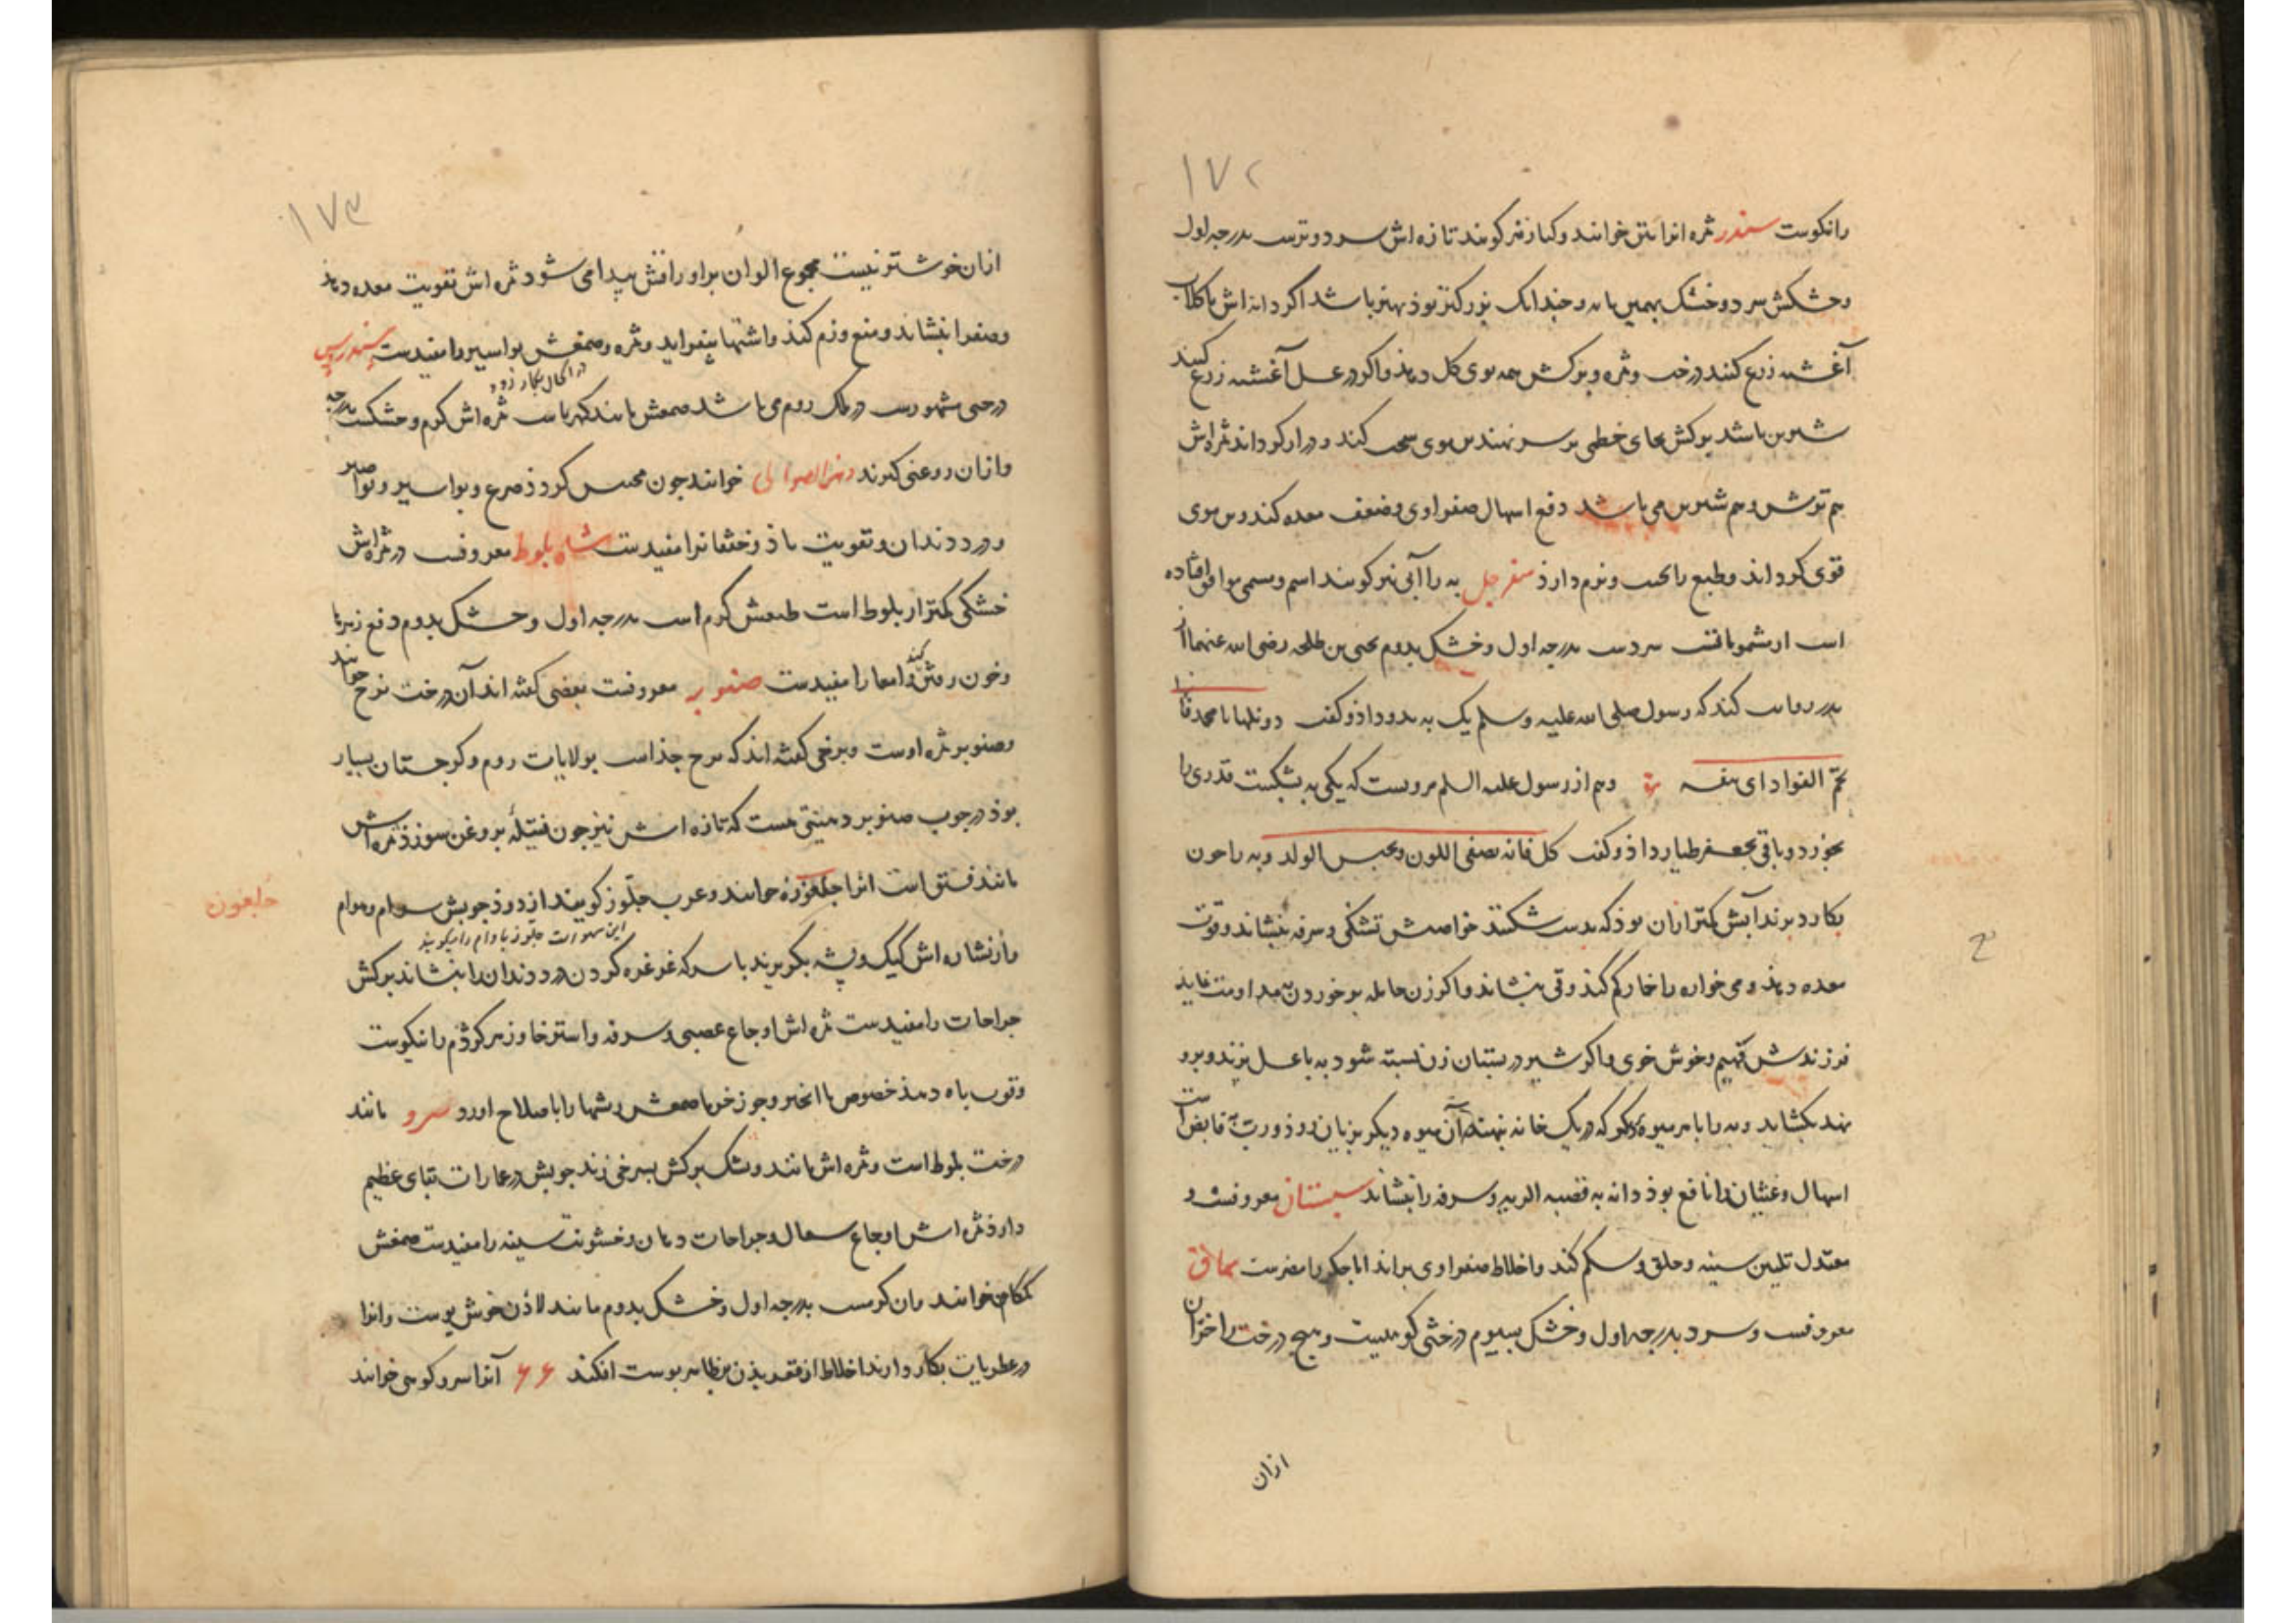 ۱۷۲
رانکوست سدر ثمره انرا نبق خوانند و کنار نیز کویند تازه اش سرد و ترست بدرجه اول
و خشکش سرد و خشک بهمین پایه و چندانک بزرکتر بوذ بهتر باشد اکر دانه اش با کلاب
آغشته زرع کنند درخت و ثمره و برکش همه بوی کل دهذ و اکر در عسل آغشته زرع کنند
شیرین باشد برکش بجای خطمی بر سر نهند بن موی سخت کند و دراز کرداند ثمره اش
هم ترش و هم شیرین می باشد دفع اسهال صفراوی و ضعف معده کند و بن موی
قوی کرداند و طبع را نرم دارذ سفرجل به را آبی نیز کویند اسم و مسمی موافق افتاده
است سردست بدرجه اول و خشک بدوم یحیی بن طلحه رضی الله عنهما از
پدر روایت کند که رسول صلی الله علیه و سلم یک به بدو داذ و کفت دونکها یا محمد فانها
تجم الفواد ای و هم از رسول علیه السلم مرویست که یکی به بشکست قدری را
بخورد و باقی بجعفر طیار داذ و کفت کل فانه یصفی اللون و یحسن الولد و به را چون
بکارد برند آبش کمتر ازان بوذ که بدست شکنند خواصش تشنکی و سرفه بنشاند و قوت
معده دهذ و می خواره را خمار کم کند و قی بنشاند و اکر زن حامله بر خوردن به مداومت نماید
فرزندش فهیم و خوش خوی و اکر شیر در پستان زن بسته شود به با عسل بزند و برو
نهند بکشاید و به را با هر میوه دیکر که در یک خانه نهند آن میوه دیکر بزیان روذ و ربّ به قابض است
اسهال و غثیان را نافع بوذ دانه به قصبه الریه و سرفه را بنشاند سپستان معروفست و
معتدل تلیین سینه و حلق و شکم کند و اخلاط صفراوی براند اما جکر را مضرست سماق
معروفست و سرد بدرجه اول و خشک بسیوم درختی کوهیست و هیچ درخت را خزان
ازان
۱۷۳
ازان خوشتر نیست مجموع الوان بر اوراقش پیدا می شود ثمره اش تقویت معده دهذ
و صفرا بنشاند و منع ورم کند و اشتها بیفزاید و ثمره و صمغش بواسیر را مفیدست سندروس
درختی مشهورست در ملک روم می باشد صمغش مانند کهرباست ثمره اش کرم و خشکست بدرجه
و ازان روغنی کیرند دهن الصوالی خوانند چون کرد ذ صرع و بواسیر و نواصیر
و درد دندان و تقویت باذ و خفقانرا مفیدست شاه بلوط معروفست در ثمره اش
خشکی کمتر از بلوط است طبعش کرم است بدرجه اول و خشک بدوم دفع زهرها
و خون رفتن کند و امعا را مفیدست صنوبر معروفست بعضی کفته اند آن درخت نوح خوانند
و صنوبر ثمره اوست و برخی کفته اند که بولایات روم و کرجستان بسیار
بوذ در چوب صنوبر دهنیتی هست که تازه اش نیز چون فتیله بروغن سوزذ ثمره اش
مانند فستق است انرا جلغوزه خوانند و عرب جلّوز کویند از دوذ چوبش سوام و هوام
این سهو است جلوز بادام را میکویند
و از نشاره اش کیک و پشه بکریزند با سرکه غرغره کردن درد دندان را بنشاند برکش
جراحات را مفیدست ثمره اش اوجاع عصبی و سرفه و استرخا و زهر کزدم را نیکوست
و قوت باه دهذ خصوص با انجیر و جوز خرما صمغش ریشها را باصلاح اورد سرو مانند
درخت بلوط است و ثمره اش مانند و تنک برکش بسرخی زند چوبش در عمارات بقای عظیم
دارذ ثمره اش اوجاع سعال و جراحات دهان و خشونت سینه را مفیدست صمغش
کمکام خوانند و ان کرمست بدرجه اول و خشک بدوم مانند لاذن خوش بوست و انرا
در عطریات بکار دارند اخلاط از قعر بذن بظاهر پوست افکند عرعر آنرا سرو کوهی خوانند
جلیغون